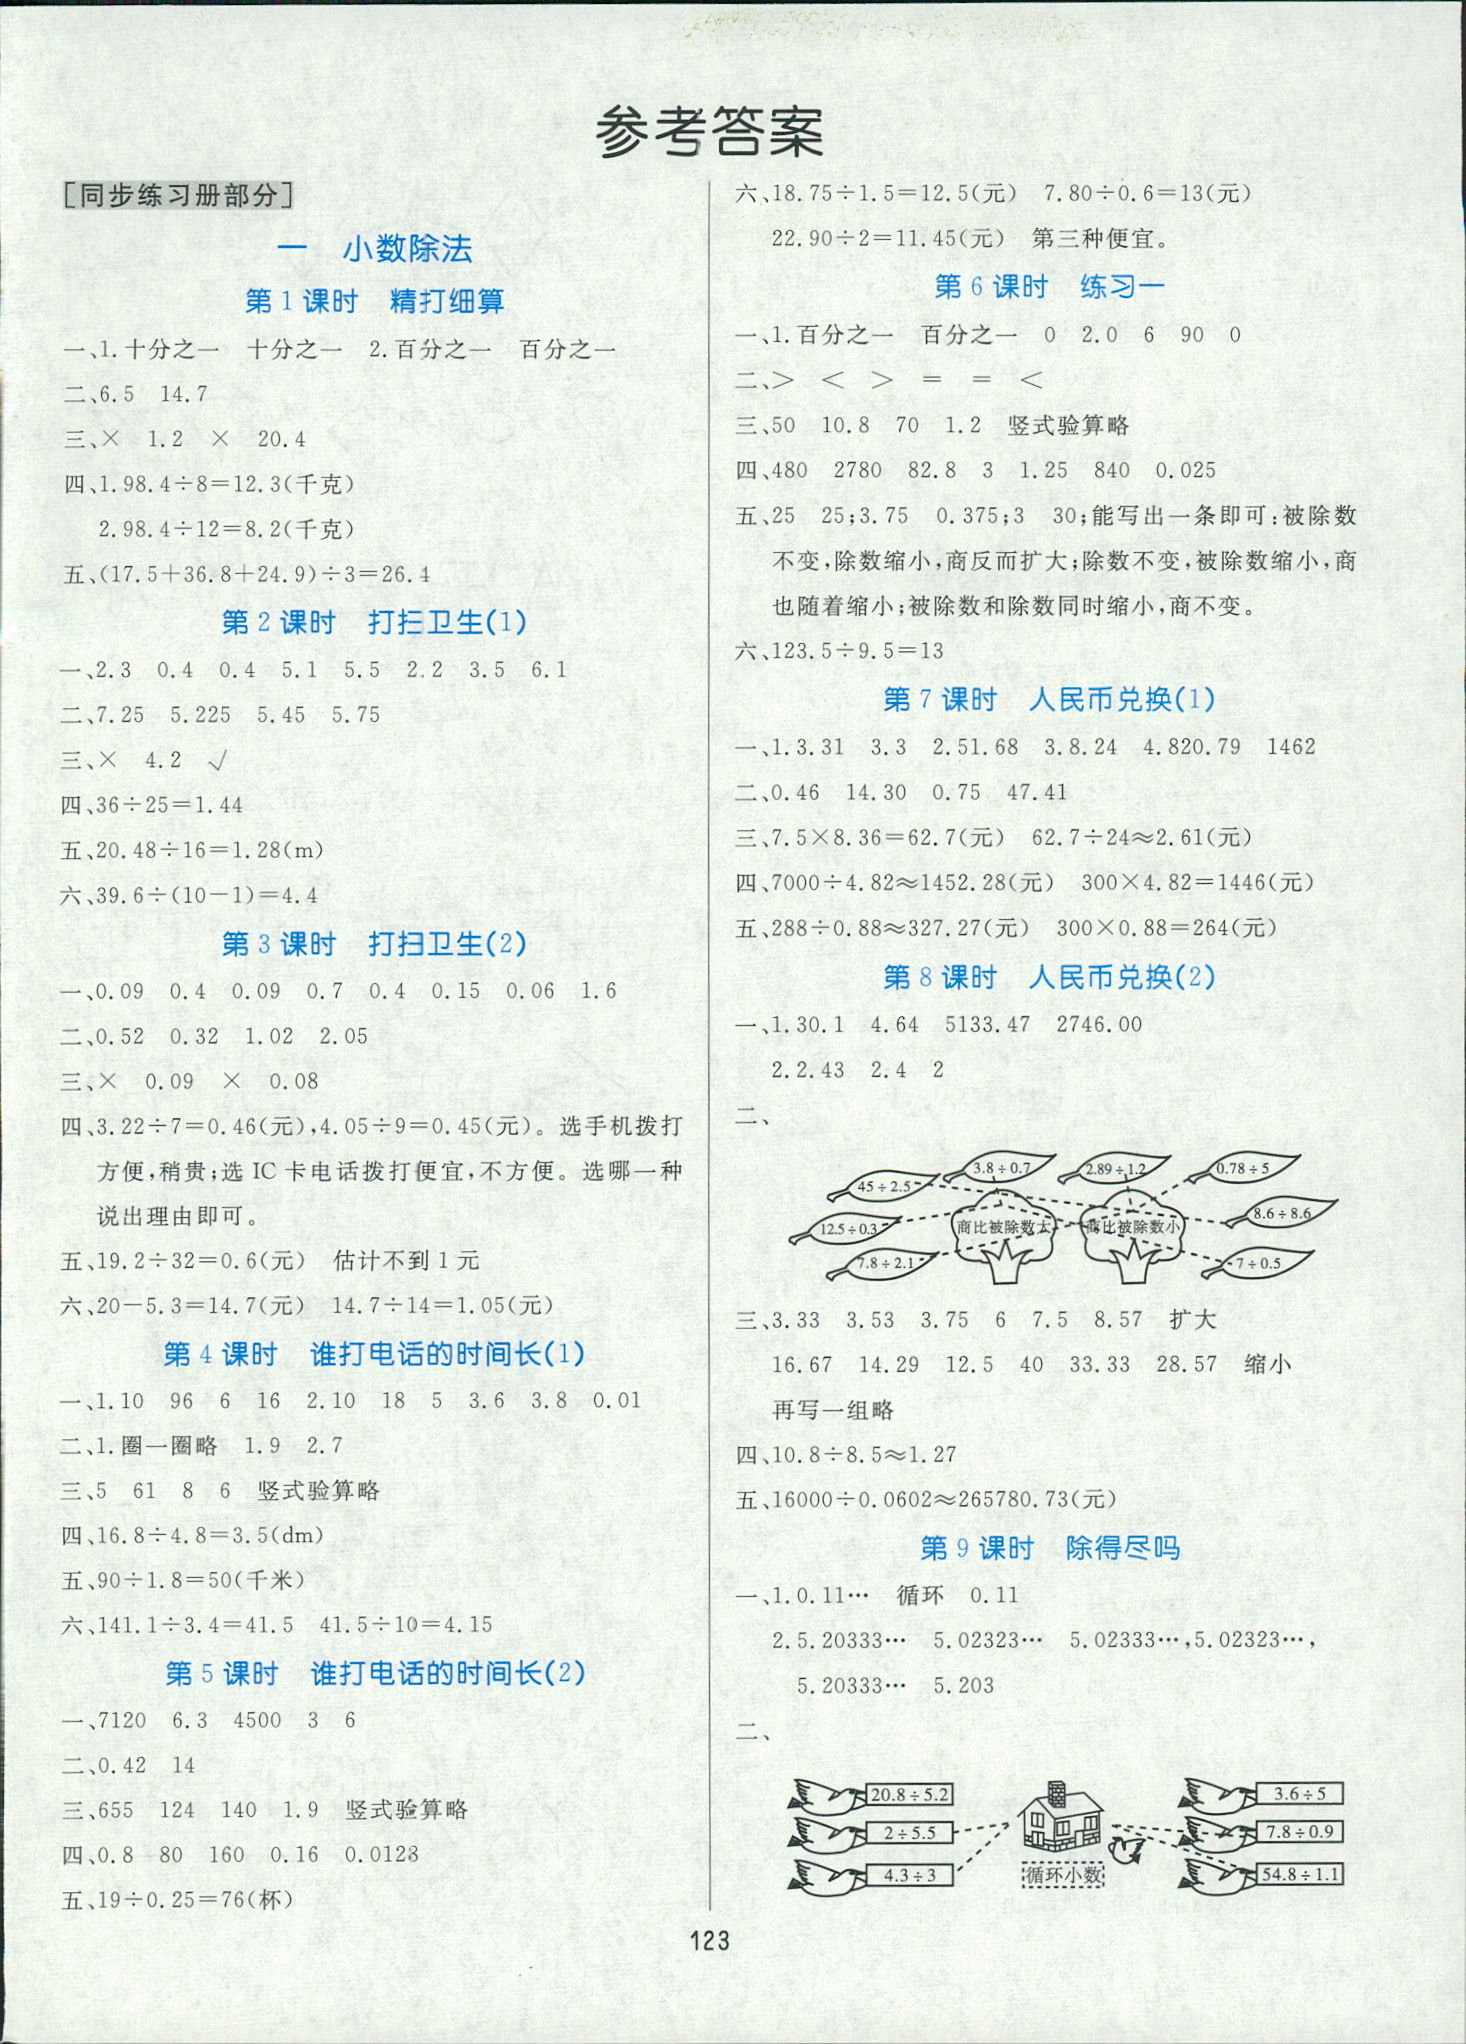 参考答案
[同步练习册部分]
一 小数除法
第1课时 精打细算
一、1.十分之一 十分之一 2.百分之一 百分之一
二、6.5 14.7
三、× 1.2 × 20.4
四、1.98.4÷8=12.3(千克)
2.98.4÷12=8.2(千克)
五、(17.5+36.8+24.9)÷3=26.4
第2课时 打扫卫生(1)
一、2.3 0.4 0.4 5.1 5.5 2.2 3.5 6.1
二、7.25 5.225 5.45 5.75
三、× 4.2 √
四、36÷25=1.44
五、20.48÷16=1.28(m)
六、39.6÷(10-1)=4.4
第3课时 打扫卫生(2)
一、0.09 0.4 0.09 0.7 0.4 0.15 0.06 1.6
二、0.52 0.32 1.02 2.05
三、× 0.09 × 0.08
四、3.22÷7=0.46(元),4.05÷9=0.45(元)。选手机拨打
方便,稍贵;选IC卡电话拨打便宜,不方便。选哪一种
说出理由即可。
五、19.2÷32=0.6(元) 估计不到1元
六、20-5.3=14.7(元) 14.7÷14=1.05(元)
第4课时 谁打电话的时间长(1)
一、1.10 96 6 16 2.10 18 5 3.6 3.8 0.01
二、1.圈一圈略 1.9 2.7
三、5 61 8 6 竖式验算略
四、16.8÷4.8=3.5(dm)
五、90÷1.8=50(千米)
六、141.1÷3.4=41.5 41.5÷10=4.15
第5课时 谁打电话的时间长(2)
一、7120 6.3 4500 3 6
二、0.42 14
三、655 124 140 1.9 竖式验算略
四、0.8 80 160 0.16 0.0128
五、19÷0.25=76(杯)
六、18.75÷1.5=12.5(元) 7.80÷0.6=13(元)
22.90÷2=11.45(元) 第三种便宜。
第6课时 练习一
一、1.百分之一 百分之一 0 2.0 6 90 0
二、> < > = = <
三、50 10.8 70 1.2 竖式验算略
四、480 2780 82.8 3 1.25 840 0.025
五、25 25;3.75 0.375;3 30;能写出一条即可:被除数
不变,除数缩小,商反而扩大;除数不变,被除数缩小,商
也随着缩小;被除数和除数同时缩小,商不变。
六、123.5÷9.5=13
第7课时 人民币兑换(1)
一、1.3.31 3.3 2.51.68 3.8.24 4.820.79 1462
二、0.46 14.30 0.75 47.41
三、7.5×8.36=62.7(元) 62.7÷24≈2.61(元)
四、7000÷4.82≈1452.28(元) 300×4.82=1446(元)
五、288÷0.88≈327.27(元) 300×0.88=264(元)
第8课时 人民币兑换(2)
一、1.30.1 4.64 5133.47 2746.00
2.2.43 2.4 2
二、
45÷2.5 3.8÷0.7 2.89÷1.2 0.78÷5
12.5÷0.3 商比被除数大 商比被除数小 8.6÷8.6
7.8÷2.1 7÷0.5
三、3.33 3.53 3.75 6 7.5 8.57 扩大
16.67 14.29 12.5 40 33.33 28.57 缩小
再写一组略
四、10.8÷8.5≈1.27
五、16000÷0.0602≈265780.73(元)
第9课时 除得尽吗
一、1.0.11… 循环 0.11
2.5.20333… 5.02323… 5.02333…,5.02323…,
5.20333… 5.203
二、
20.8÷5.2 3.6÷5
2÷5.5 7.8÷0.9
4.3÷3 循环小数 54.8÷1.1
123